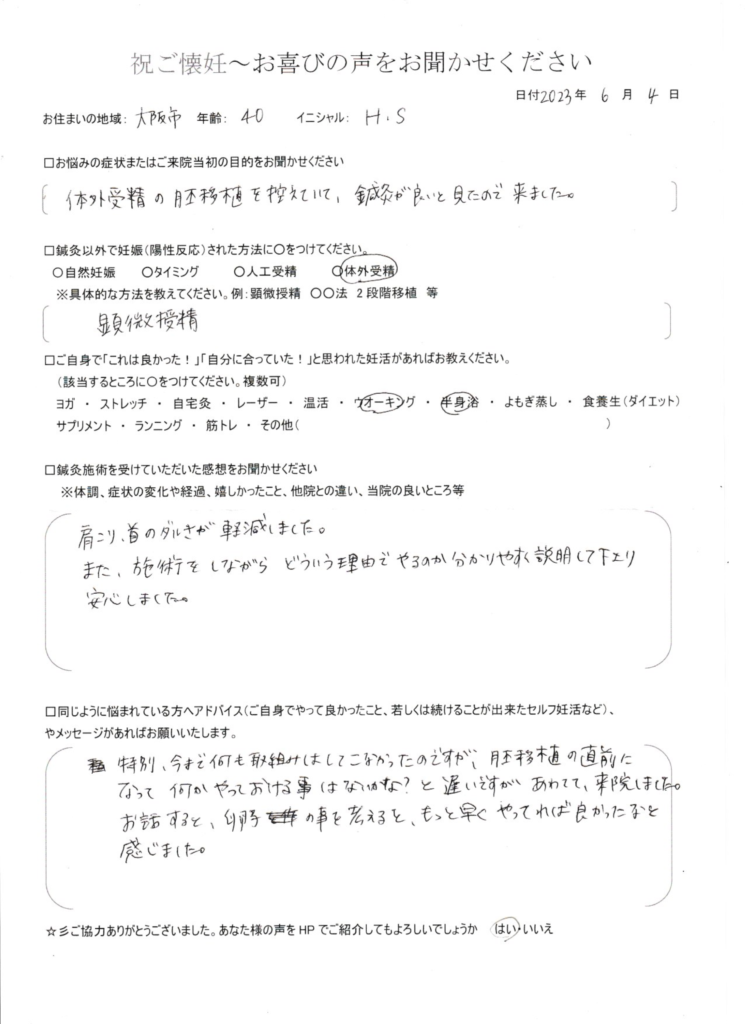 祝ご懐妊～お喜びの声をお聞かせください
日付2023年 6 月 4 日
お住まいの地域: 大阪市 年齢: 40 イニシャル: H.S
□お悩みの症状またはご来院当初の目的をお聞かせください
体外受精の胚移植を控えていて、鍼灸が良いと見たので来ました。
□鍼灸以外で妊娠(陽性反応)された方法に〇をつけてください。
〇自然妊娠 〇タイミング 〇人工受精 〇体外受精
※具体的な方法を教えてください。例:顕微授精 〇〇法 2段階移植 等
顕微授精
□ご自身で「これは良かった!」「自分に合っていた!」と思われた妊活があればお教えください。
(該当するところに〇をつけてください。複数可)
ヨガ ・ ストレッチ ・ 自宅灸 ・ レーザー ・ 温活 ・ ウオーキング ・ 半身浴 ・ よもぎ蒸し ・ 食養生(ダイエット)
サプリメント ・ ランニング ・ 筋トレ ・ その他( )
□鍼灸施術を受けていただいた感想をお聞かせください
※体調、症状の変化や経過、嬉しかったこと、他院との違い、当院の良いところ等
肩こり、首のダルさが軽減しました。
また、施術をしながらどういう理由でやるのか分かりやすく説明して下さり
安心しました。
□同じように悩まれている方へアドバイス(ご自身でやって良かったこと、若しくは続けることが出来たセルフ妊活など)、
やメッセージがあればお願いいたします。
特別、今まで何も取組みはしてこなかったのですが、胚移植の直前に
なって何かやっておける事はないかな?と遅いですがあわてて、来院しました。
お話すると、卵子の事を考えると、もっと早くやってれば良かったなと
感じました。
☆彡ご協力ありがとうございました。あなた様の声をHPでご紹介してもよろしいでしょうか はい・いいえ